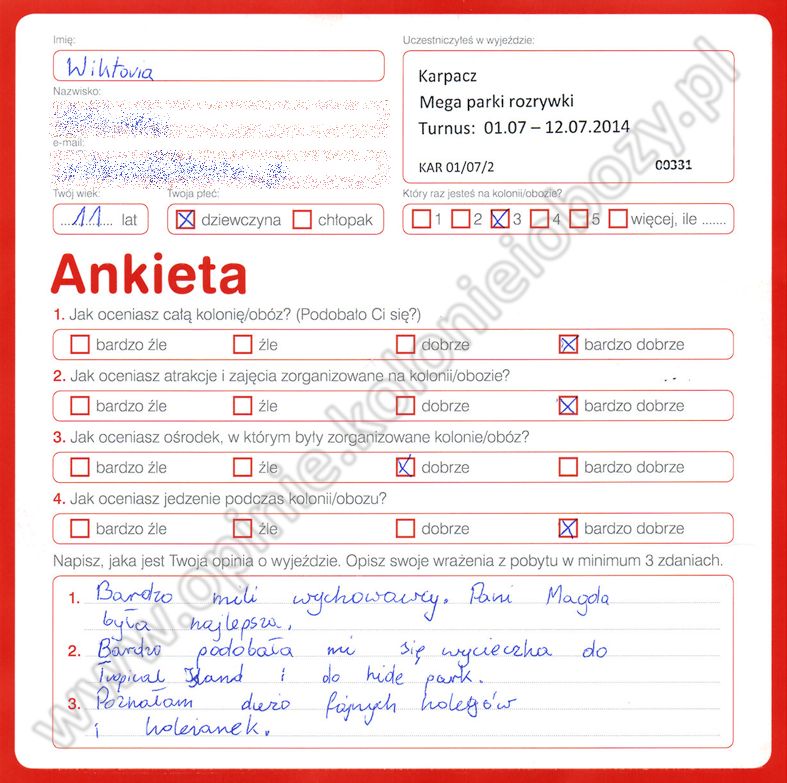 Imię:
Wiktoria
Uczestniczyłeś w wyjeździe:
Karpacz
Mega parki rozrywki
Turnus: 01.07 – 12.07.2014
KAR 01/07/2 00331
Nazwisko:
e-mail:
Twój wiek:
11 lat
Twoja płeć:
dziewczyna chłopak
Który raz jesteś na kolonii/obozie?
1 2 3 4 5 więcej, ile .......
Ankieta
1. Jak oceniasz całą kolonię/obóz? (Podobało Ci się?)
bardzo źle źle dobrze bardzo dobrze
2. Jak oceniasz atrakcje i zajęcia zorganizowane na kolonii/obozie?
bardzo źle źle dobrze bardzo dobrze
3. Jak oceniasz ośrodek, w którym były zorganizowane kolonie/obóz?
bardzo źle źle dobrze bardzo dobrze
4. Jak oceniasz jedzenie podczas kolonii/obozu?
bardzo źle źle dobrze bardzo dobrze
Napisz, jaka jest Twoja opinia o wyjeździe. Opisz swoje wrażenia z pobytu w minimum 3 zdaniach.
1. Bardzo mili wychowawcy. Pani Magda
była najlepsza.
2. Bardzo podobała mi się wycieczka do
Tropical Island i do hide park.
3. Poznałam dużo fajnych kolegów
i koleżanek.
www.opinie.kolonieiobozy.pl